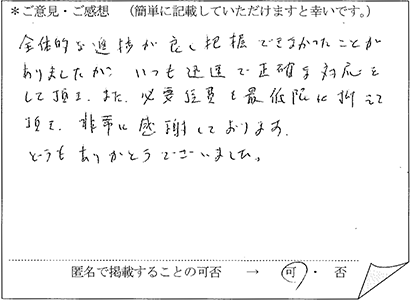 ＊ご意見・ご感想　（簡単に記載していただけますと幸いです。）
全体的な進捗が良く把握できなかったことが
ありましたが、いつも迅速で正確な対応を
して頂き、また、必要経費も最低限に抑えて
頂き、非常に感謝しております。
どうもありがとうございました。
匿名で掲載することの可否　→　可・否